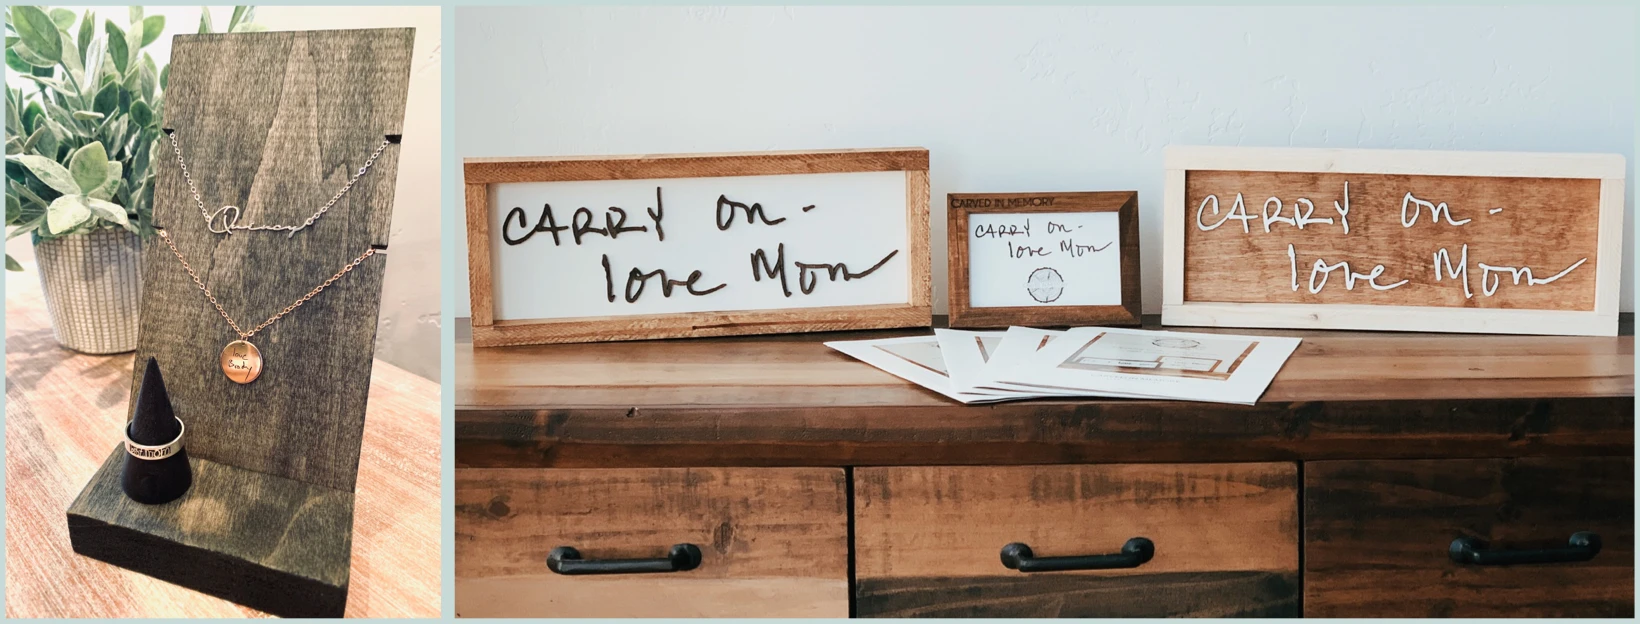 Quincy
love
CARRY on -
love Mom
CARVED IN MEMORY
CARRY on -
love Mom
CARRY on -
love Mom